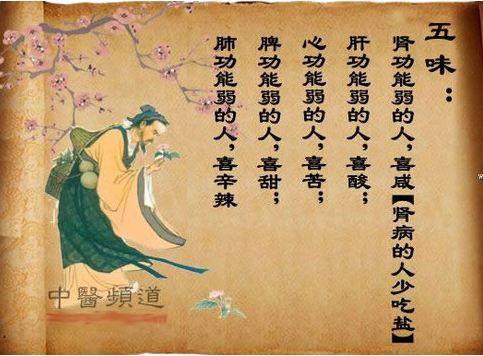 五味：
肾功能弱的人，喜咸【肾病的人少吃盐】
肝功能弱的人，喜酸；
心功能弱的人，喜苦；
脾功能弱的人，喜甜；
肺功能弱的人，喜辛辣
中醫頻道